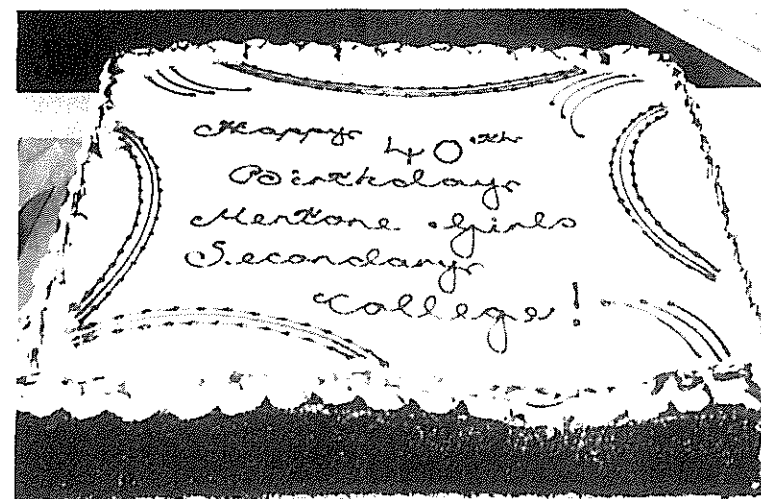 Happy 40th
Birthday
Mentone Girls
Secondary
College!